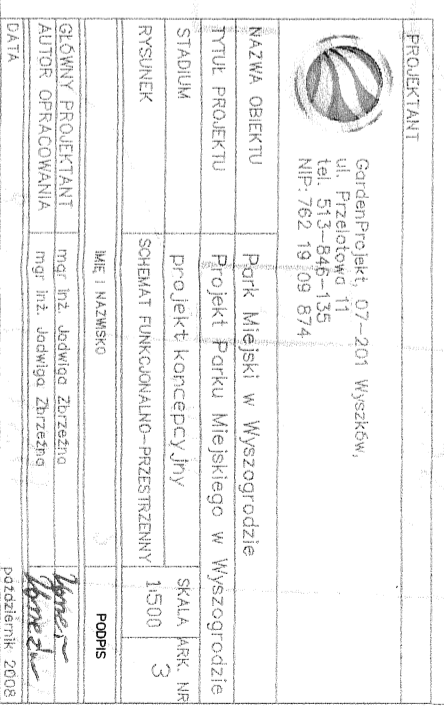 PROJEKTANT
GardenProjekt, 07-201 Wyszków,
ul. Przelotowa 11
tel. 513-846-135
NIP: 762 19 09 874
NAZWA OBIEKTU Park Miejski w Wyszogrodzie
TYTUŁ PROJEKTU Projekt Parku Miejskiego w Wyszogrodzie
STADIUM projekt koncepcyjny SKALA ARK. NR
RYSUNEK SCHEMAT FUNKCJONALNO-PRZESTRZENNY 1:500 3
IMIĘ I NAZWISKO PODPIS
GŁÓWNY PROJEKTANT mgr inż. Jadwiga Zbrzeźna
AUTOR OPRACOWANIA mgr inż. Jadwiga Zbrzeźna
DATA październik 2008